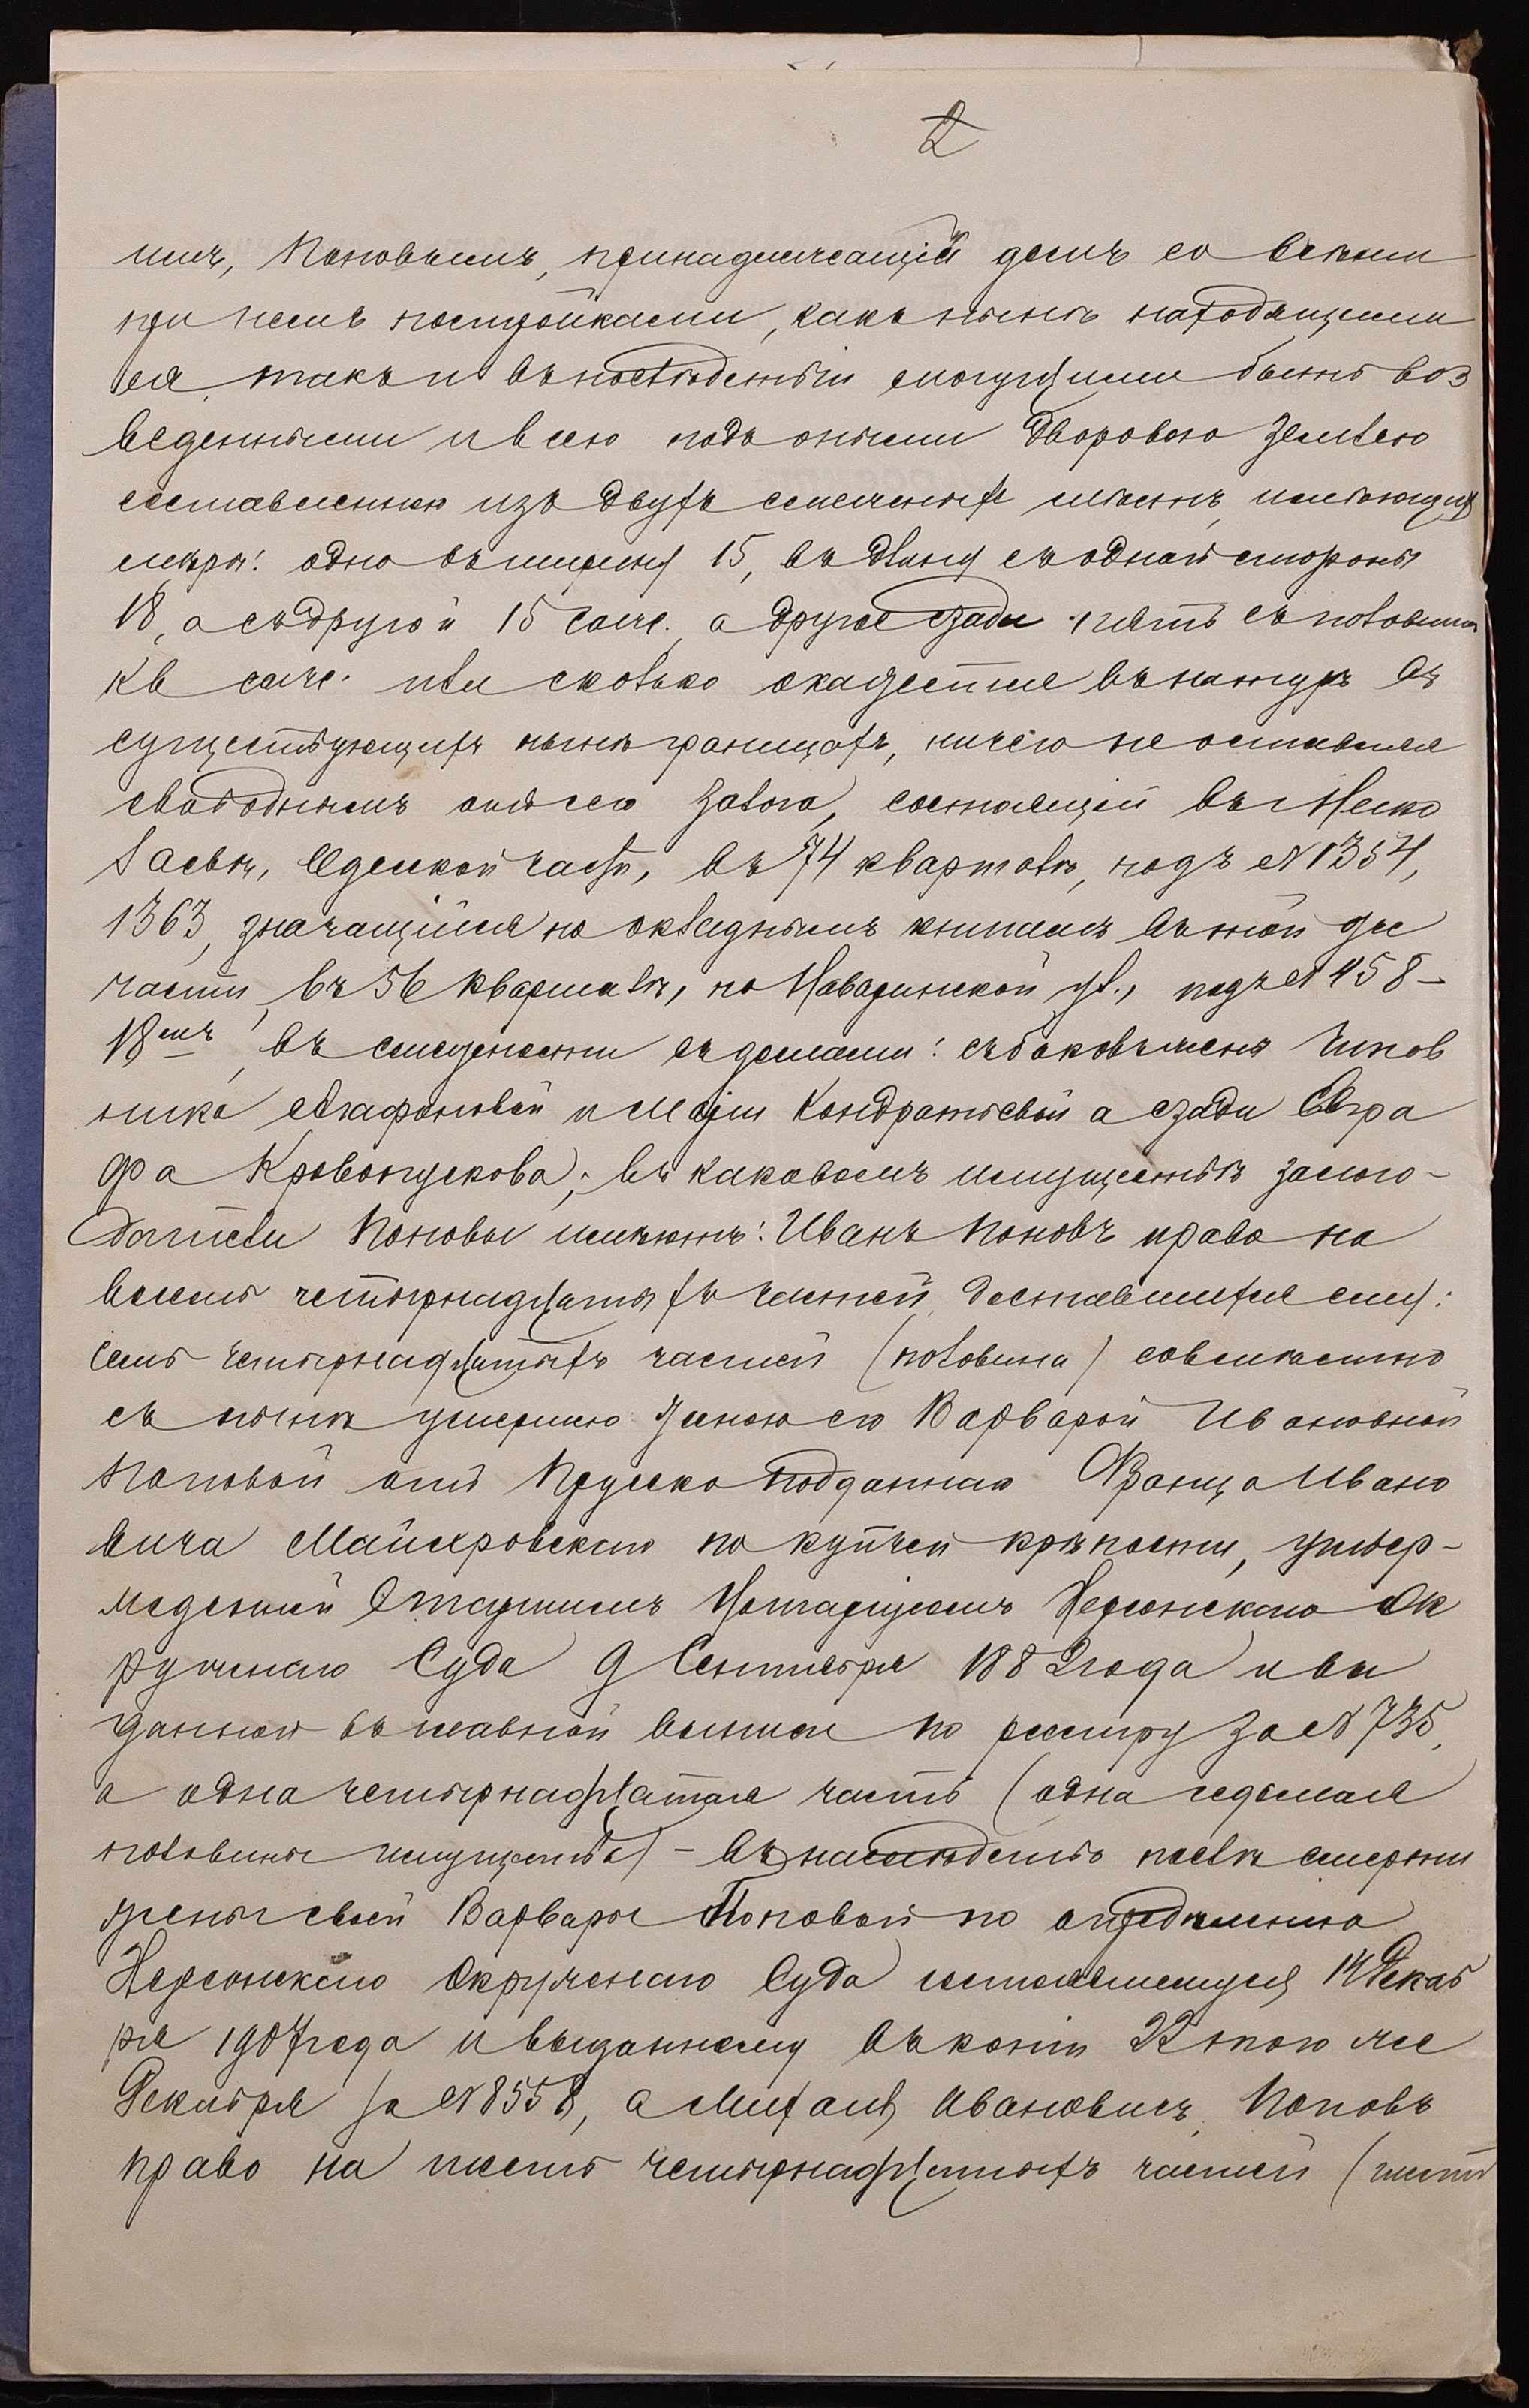 2
имъ, Поповымъ, принадлежащій домъ со всѣми
при немъ постройками, какъ нынѣ находящими
ся, такъ и впослѣдствіи могущими быть воз
веденными и всею подъ оными дворовою землею
составленною изъ двухъ смежныхъ мѣстъ, имѣющихъ
мѣры: одно въ ширину 15, въ длину съ одной стороны
18, а съ другой 15 саж., а другое сзади пять съ половиной
кв саж. или сколько окажется въ натурѣ въ
существующихъ нынѣ границахъ, ничего не оставляя
свободнымъ отъ сего залога, состоящій въ г. Нико
лаевѣ, Одесской части, въ 74 кварталѣ, подъ № 1354,
1363, значащійся по окладнымъ книгамъ въ той же
части, въ 56 кварталѣ, по Наваринской ул., подъ № 458-
18мъ, въ смежности съ домами: съ боковъ жены Чинов
ника Агафоновой и Маріи Кондратьевой а сзади Евгра
фа Кровопускова; въ каковомъ имуществѣ залого-
датели Поповы имѣютъ: Иванъ Поповъ право на
восемь четырнадцатыхъ частей, доставшихся ему:
семь четырнадцатыхъ частей (половина) совмѣстно
съ нынѣ умершею женою его Варварой Ивановной
Поповой отъ Прусско подданнаго Франца Ивано
вича Майеровскаго по купчей крѣпости, утвер-
жденной Старшимъ Нотаріусомъ Херсонскаго Ок
ружнаго Суда 9 Сентября 1882 года и вы
данной въ главной выписи по реестру за № 735,
а одна четырнадцатая часть (одна седьмая
половины имущества) - въ наслѣдство послѣ смерти
жены своей Варвары Поповой по опредѣленію
Херсонскаго Окружнаго Суда состоявшемуся 14 Декаб
ря 1907 года и выданному въ копіи 22 того же
Декабря за № 8558, а Михаилъ Ивановичъ Поповъ
право на шесть четырнадцатыхъ частей (шесть